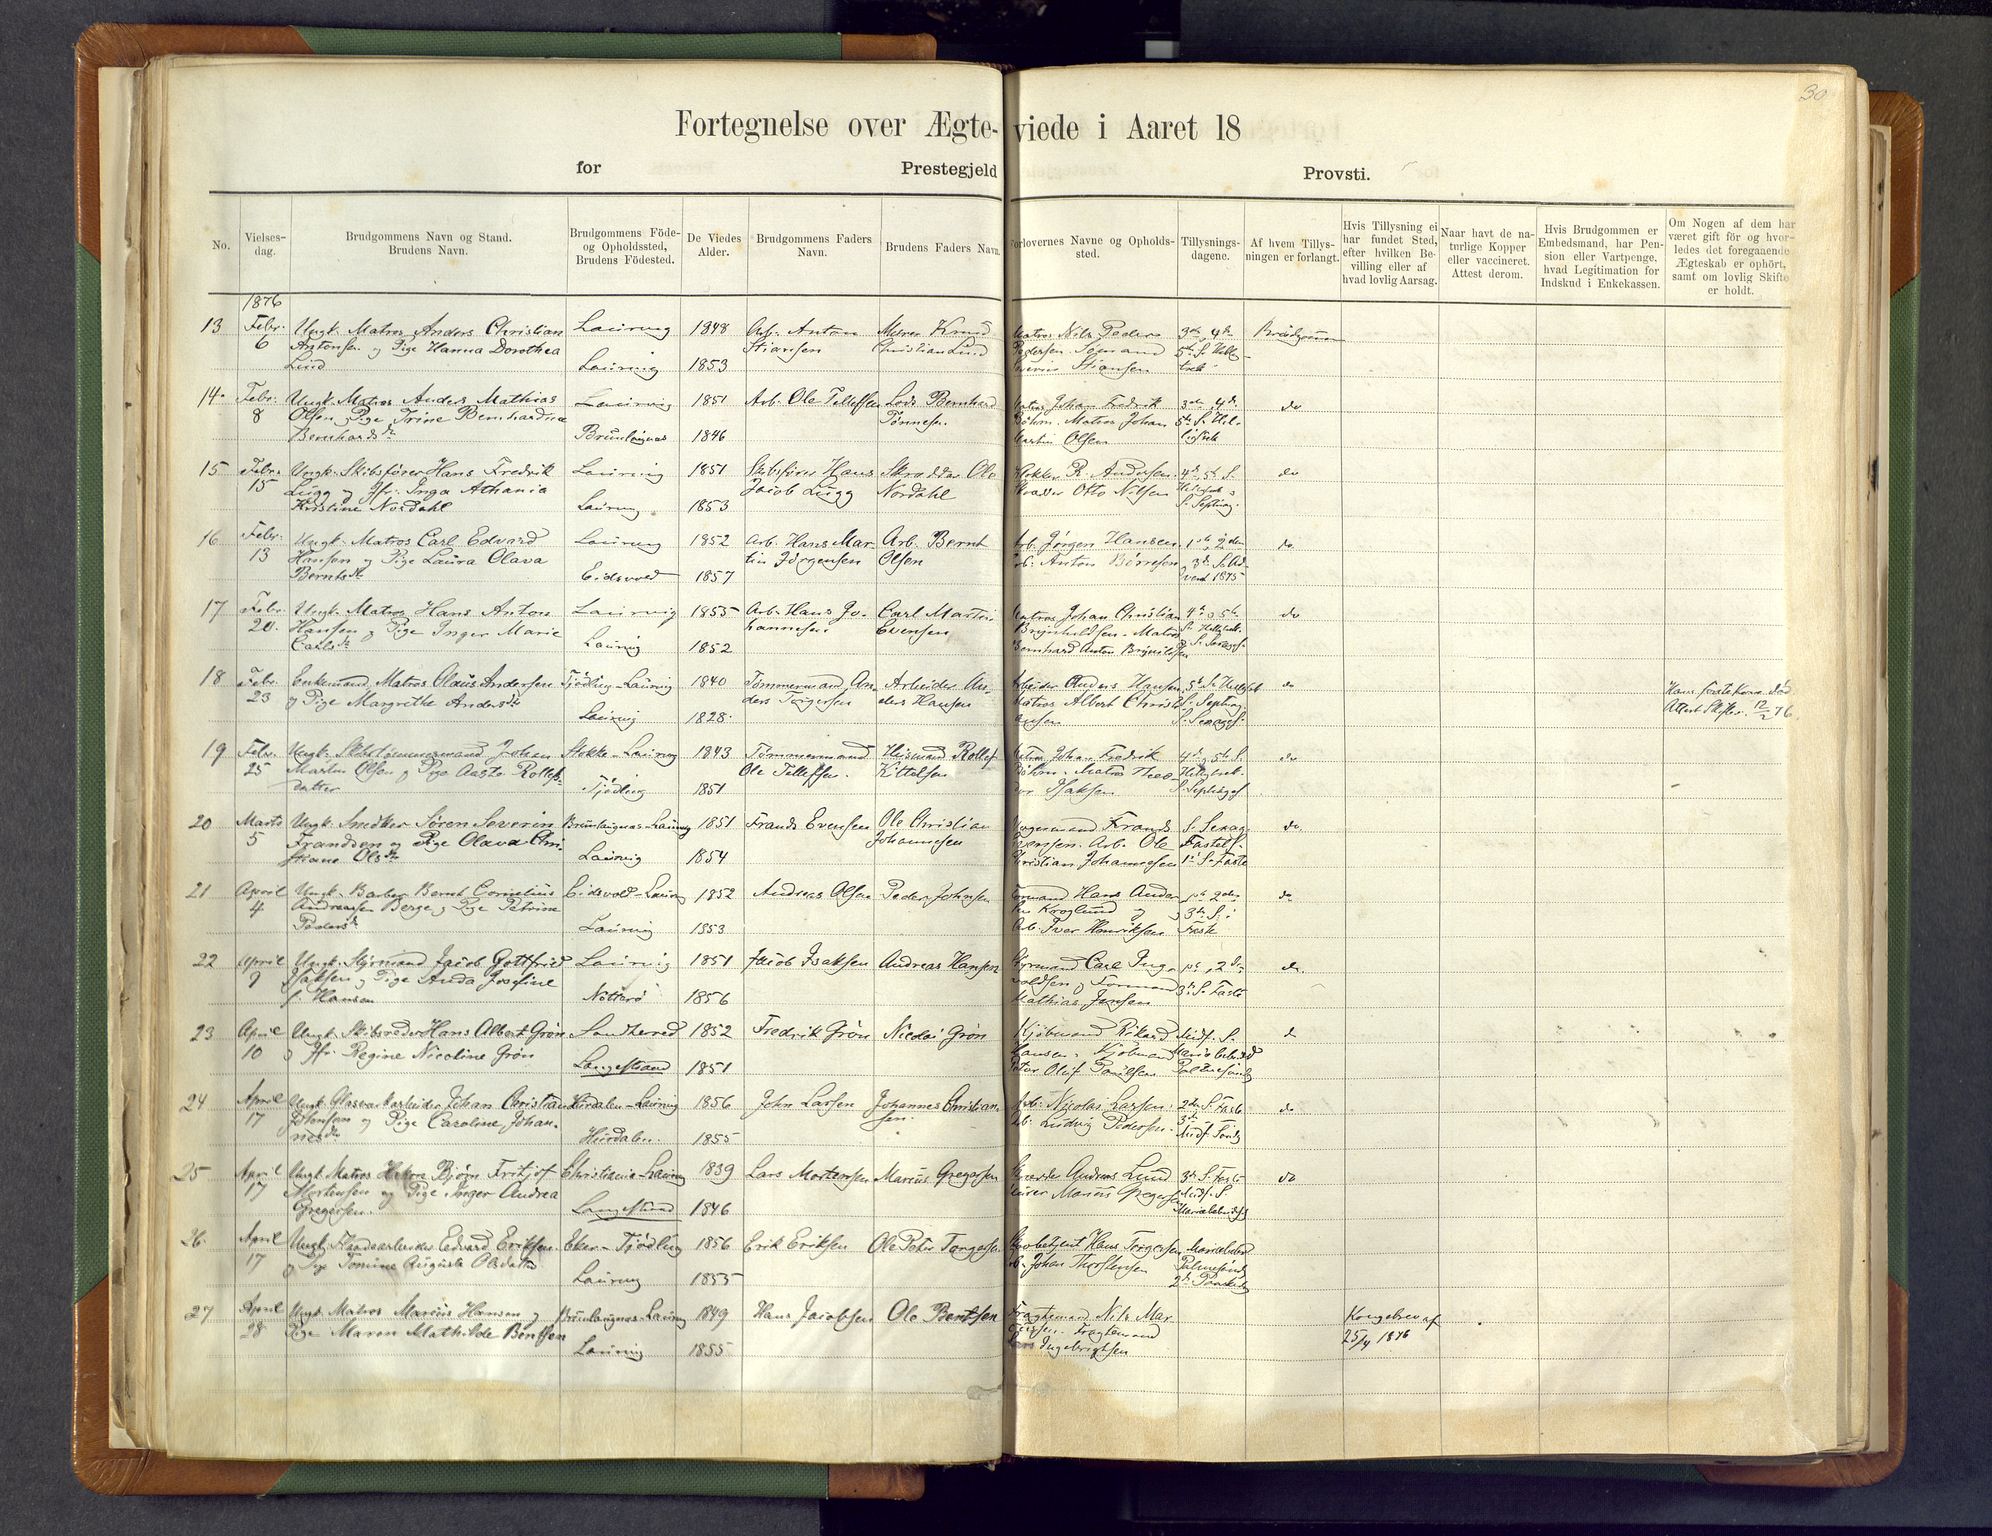 30
Fortegnelse over Ægteviede i Aaret 18
for Prestegjeld Provsti.
No.
Vielsesdag.
Brudgommens Navn og Stand.
Brudens Navn.
Brudgommens Föde-
og Opholdssted,
Brudens Födested.
De Viedes
Alder.
Brudgommens Faders
Navn.
Brudens Faders Navn.
Forlovernes Navne og Opholds-
sted.
Tillysnings-
dagene.
Af hvem Tillys-
ningen er forlangt.
Hvis Tillysning ei
har fundet Sted,
efter hvilken Be-
villing eller af
hvad lovlig Aarsag.
Naar havt de na-
turlige Kopper
eller vaccineret.
Attest derom.
Hvis Brudgommen er
Embedsmand, har Pen-
sion eller Vartpenge,
hvad Legitimation for
Indskud i Enkekassen.
Om Nogen af dem har
været gift för og hvor-
ledes det foregaaende
Ægteskab er ophört,
samt om lovlig Skifte
er holdt.
1876
13 Febr. Ungk. Matros Anders Christian Laurvig 1848 Arb. Anton Murer Knud Matros Nils Peder 3die, 4de Brudgommen
6 Antonsen og Pige Hanna Dorothea Stiansen Christian Lund Pedersen
Lund Laurvig 1853 Severin Stiansen
14 Febr. Ungk. Matros Anders Mathias Laurvig 1851 Arb. Ole Tellefsen Lods Bernhard Matros Johan Fredrik 3die, 4de do
8 Olsen, Pige Trine Bernhardine Tönnesen Böhm. Matros Johan
Bernhardsdr Brunlaugnes 1846 Martin Olsen
15 Febr. Ungk. Skibsförer Hans Fredrik Laurvig 1851 Skibsförer Hans Skrædder Ole Klokker R. Andersen 4de, 5te S. do
15 Lugg og Jfr. Inga Athania Jacob Lugg Nordahl Skrædder Otto Nilsen
Kristine Nordahl Laurvig 1853 S. Septuag.
16 Febr. Ungk. Matros Carl Edvard Laurvig 1852 Arb. Hans Mar- Arb. Bernt Arb. Jörgen Hansen 1ste, 2den do
13 Hansen og Pige Laura Olava tin Jörgensen Olsen Arb. Anton Börresen og 3die S. Ad-
Berntsdr Eidsvold 1857 vent 1875
17 Febr. Ungk. Matros Hans Anton Laurvig 1855 Arb. Hans Jo- Carl Martin Matros Johan Christian 4de og 5te do
20. Hansen og Pige Inger Marie hannesen Evensen Brynhildsen. Matros
Carlsdr Laurvig 1852 Bernhard Anton Brynildsen
18 Febr. Enkemand Matros Olaus Andersen Tjödling-Laurvig 1840 Tömmermand An- Arbeider An- Arbeider Anders Hansen do Hans förste Kone död
23 og Pige Margrethe Andersdr ders Torgersen ders Hansen Matros Albert Christi- S. Septuag. Attest Skifter. 12/2 76.
Laurvig 1828. ansen S. Sexages.
19 Febr. Ungk. Skibstömmermand Johan Stokke-Laurvig 1843 Tömmermand Husmand Rollef Matros Johan Fredrik 4de, 5te S. do
25 Martin Olsen og Pige Aaste Rollefs- Ole Tellefsen. Kittelsen Böhm. Matros Theo-
datter Tjödling 1851 dor Isaksen
20 Marts Ungk. Snedker Sören Severin Brunlaugnes-Laurvig 1851 Frands Evensen Ole Christian Frands S. Sexag. do
5 Frandsen og Pige Olava Chri- Johannesen Evensen. Arb. Ole Fastel. S.
stiane Olsdr Laurvig 1854 Christian Johannesen 1ste S. Faste
21 April Ungk. Barber Bernt Cornelius Eidsvold-Laurvig 1852 Andreas Olsen Peder Johnsen Formand Hans Ander- 1ste, 2den do
4 Andreassen Berge og Pige Petrine sen Kroglund og og 3die S. i
Pedersdr Laurvig 1853 Arb. Iver Henriksen Faste
22 April Ungk. Styrmand Jacob Gottfried Laurvig 1851 Jacob Isaksen Andreas Hansen Styrmand Carl Inge- 1ste, 2den do.
9 Isaksen og Pige Anda Josefine voldsen og Formand 3die S. Faste
f. Hansen Nötterö 1856 Mathias Jensen
23 April Ungk. Skibsreder Hans Albert Grön Sandherred 1852 Fredrik Grön Nicolai Grön Kjöbmand Rikard Midf. S. do
10 og Jfr. Regine Nicoline Grön Hansen. Kjöbmand Mariæ bebud.
Langestrand 1851 Peter Oluf Poulsen Palmesöndag
24 April Ungk. Glasværkarbeider Johan Christian Hurdalen-Laurvig 1856 John Larsen Johannes Christian- Arb. Nicolas Larsen. 2den S. Faste do
17 Johnsen og Pige Caroline Johan- sen. Arb. Ludvig Pedersen. 3die
nesdr Hurdalen. 1855 Midf. Sönd.
25 April Ungk. Matros Bjørn Fritjof Christiania-Laurvig 1839 Lars Mortensen Marius Gregersen Andreas Lund 3die S. Faste do
17 Mortensen og Pige Inger Andrea Marius Gregersen Midf. S.
Gregersen. Langestrand 1846 Mariæ bebudelse
26. April Ungk. Edvard Eriksen Eker-Tjödling 1856 Erik Eriksen Ole Peter Torgersen Hans Torgersen Mariæ bebud.
17 og Pige Tomine Augusta Olsdatter Arb. Johan Thorstensen Palmesönd.
Laurvig 1855 2den Paaskedag
27 April Ungk. Matros Marius Hansen og Brunlaugnes-Laurvig 1849 Hans Jacobsen Ole Bentsen Fragtemand Nils Mar- Kongebrev af
28 Pige Maren Mathilde Bentsen tinsen. Fragtemand 25/4 1876
Laurvig 1855 Lars Ingebrigtsen